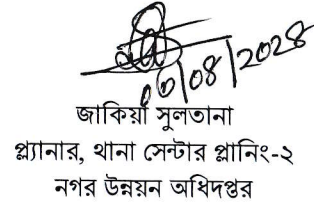 ০৬/০৪/২০২৪
জাকিয়া সুলতানা
প্ল্যানার, থানা সেন্টার প্লানিং-২
নগর উন্নয়ন অধিদপ্তর